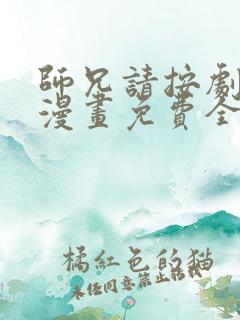 師兄請按劇
漫畫免費全
橘紅色的猫
未任同意禁止轉載